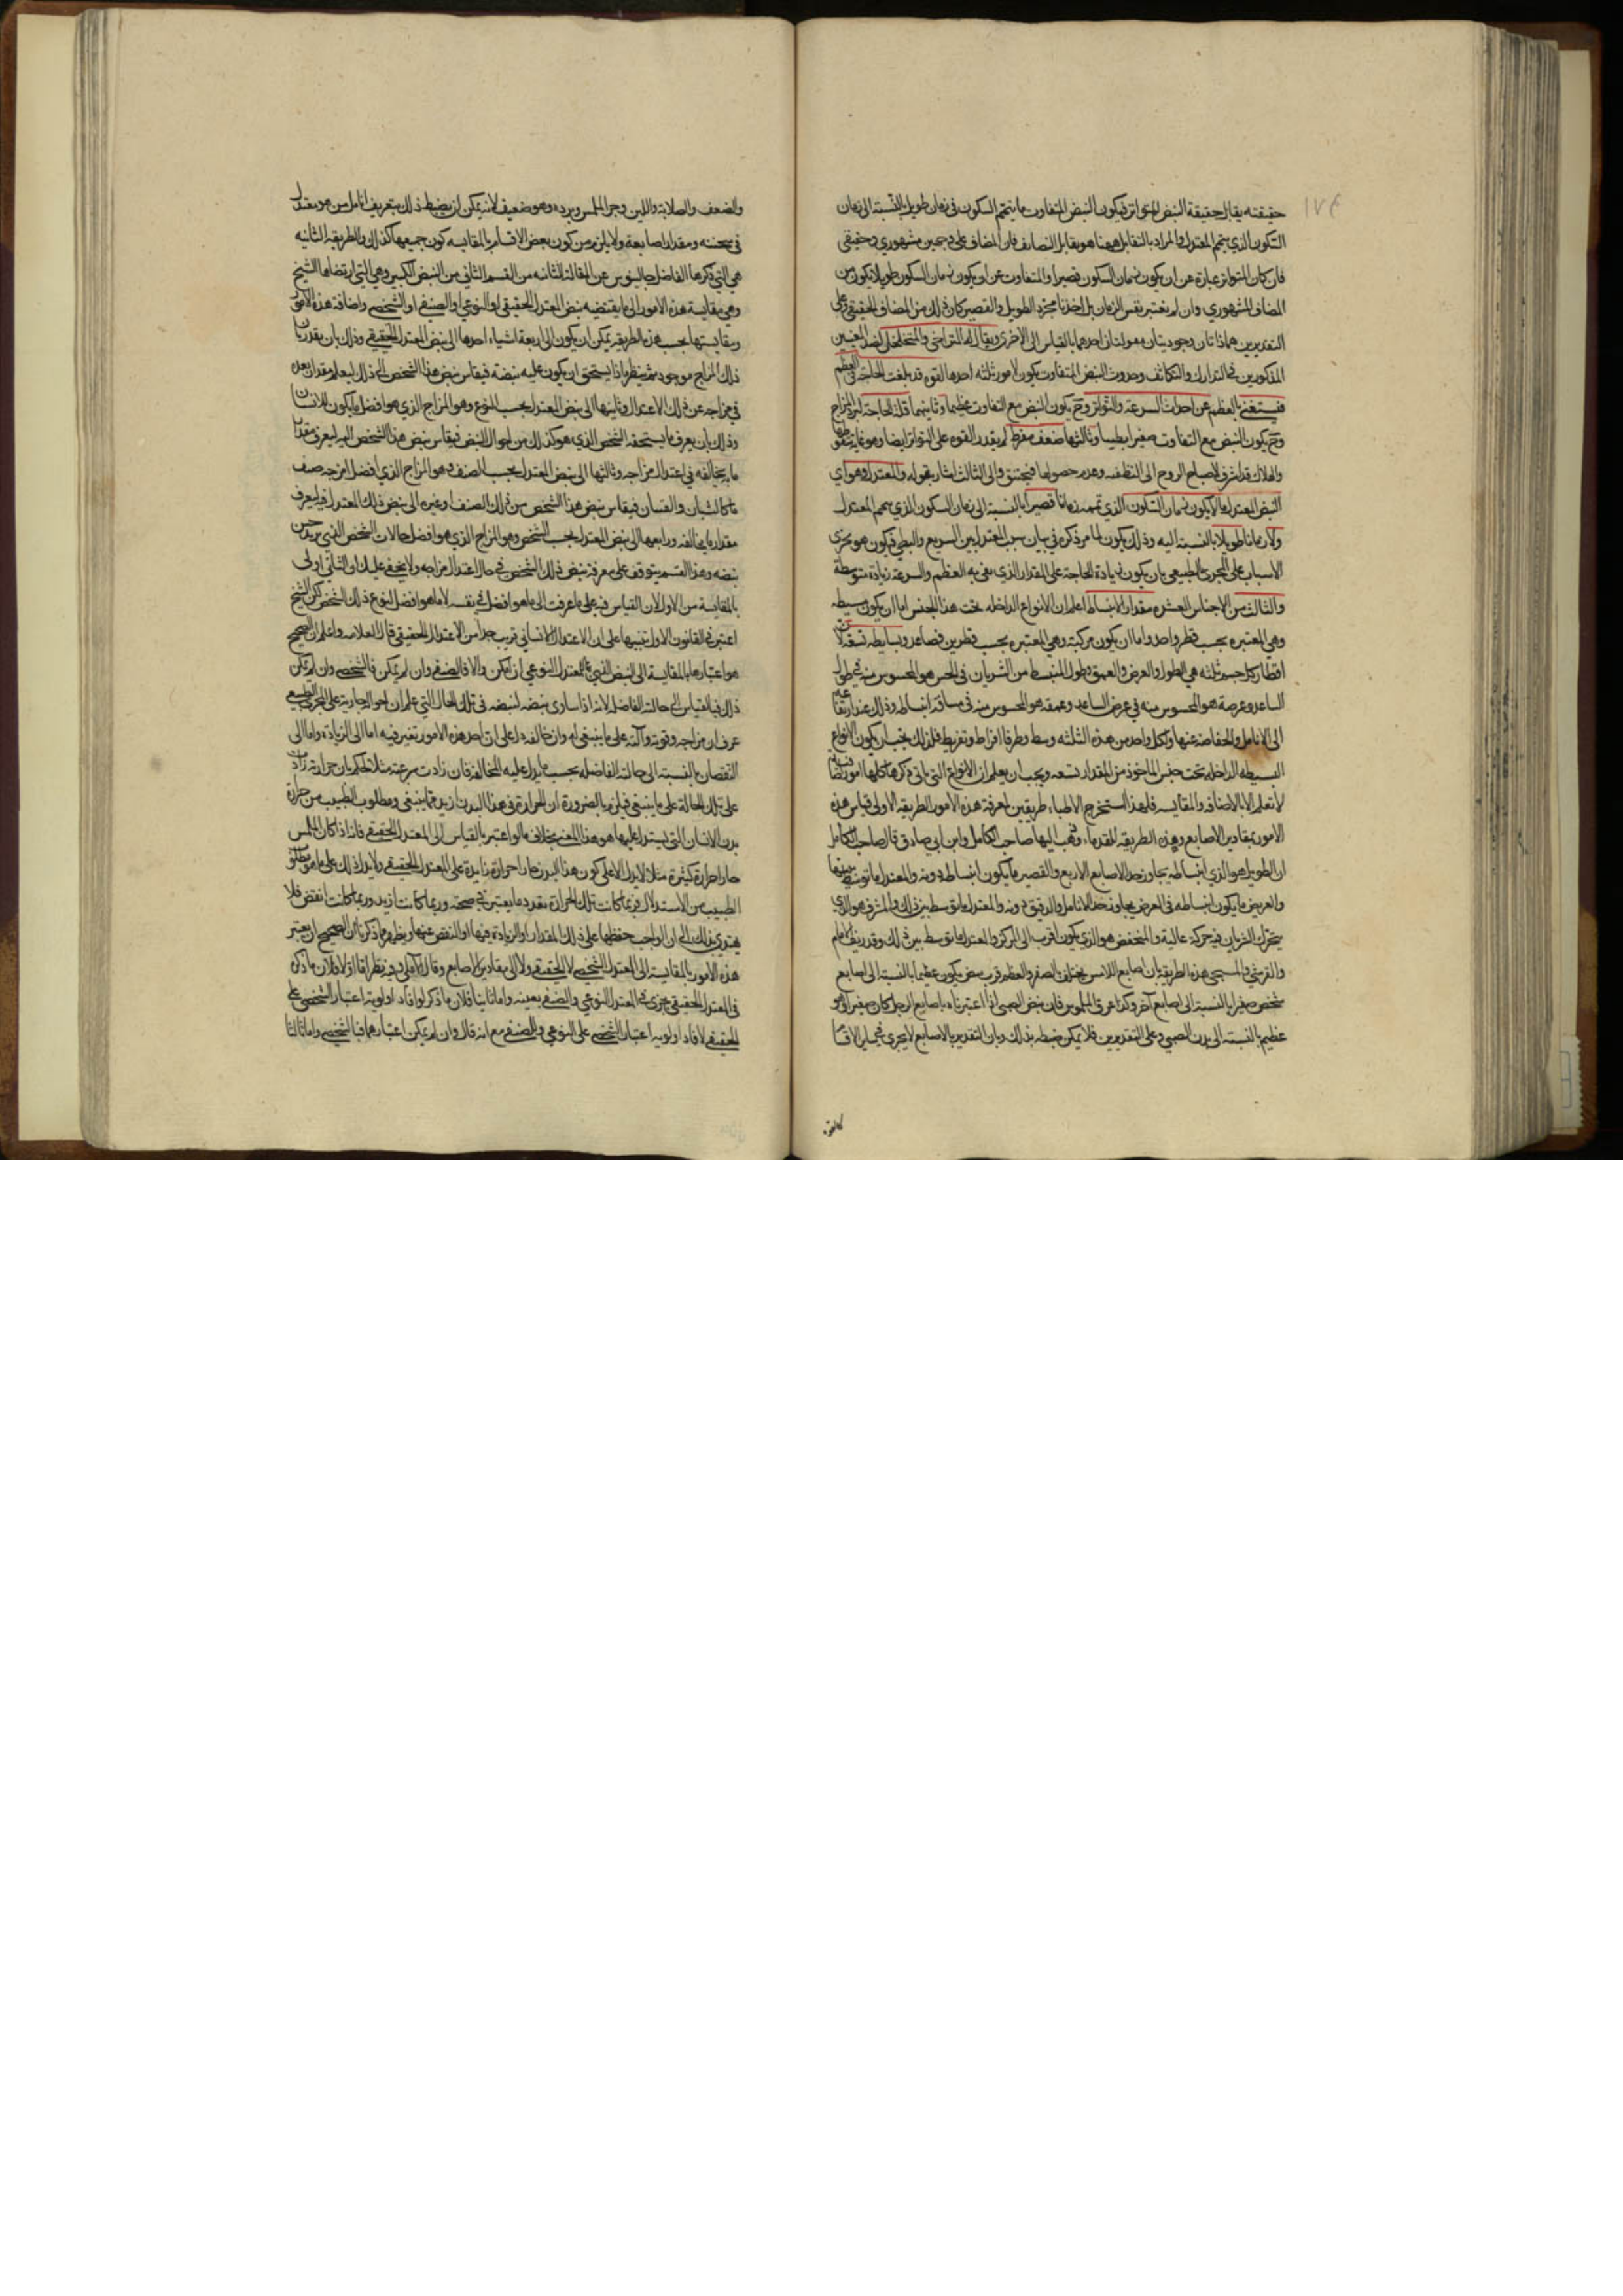 ١٧٤
حقيقته يقابل حقيقة النبض المتواتر فيكون النبض المتفاوت ما يتمم السكون فى زمان طويل بالنسبة الى زمان
السكون الذي يتمم المعتدل والمراد بالتقابل ههنا هو تقابل التضايف فان المضاف على وجهين مشهوري وحقيقى
فان كان المتواتر عبارة عن ان يكون زمان السكون قصيرا والمتفاوت عن ان يكون زمان السكون طويلا يكون من
المضاف المشهوري وان لم يعتبر نفس الزمان بل اخذنا مجرد الطويل والقصير كان ذلك من المضاف الحقيقى وعلى
التقديرين هما ذاتان وجوديتان مقولتان احدهما بالقياس الى الاخرى ويقال له المتراخى والمتخلخل لضد المعنيين
المذكورين فى التدارك والتكاثف وحدوث النبض المتفاوت يكون لامور ثلثه احدها القوه قد بلغت الحاجة فى العظم
فيستغنى بالعظم عن احداث السرعة والتواتر وح يكون النبض مع التفاوت عظيما وثانيهما قلة الحاجة لبرد المزاج
وح يكون النبض مع التفاوت صغيرا بطيئا وثالثها ضعف مفرط لم يقدر القوه على التواتر ايضا وهو غاية سقوط القوة
والهلاك قد اشرف لاحتياج الروح الى التطفيه وعدم حصولها فيختنق والى الثالث اشار بقوله والمعتدل وهو اي
النبض المعتدل ما لا يكون زمان السكون الذي تممه زمانا قصيرا بالنسبة الى زمان السكون الذي يتمم المعتدل
ولا زمانا طويلا بالنسبة اليه وذلك يكون لما مر ذكره فى بيان سبب المعتدل بين السريع والبطى فيكون هو تجرى
الاسباب على المجرى الطبيعى بان يكون زيادة الحاجة على المقدار الذي يفى به العظم والسرعة زيادة متوسطة
والثالث من الاجناس العشره مقدار الانبساط اعلم ان الانواع الداخله تحت هذا الجنس اما ان يكون بسيطه
وهى المعتبره بحسب قطر واحد واما ان يكون مركبة وهى المعتبره بحسب قطرين فصاعدا وبسايطه تسعة لان
اقطار كل جسم ثلثه هى الطول والعرض والعمق وطول المنبسط من الشريان فى الحس هو المحسوس منه فى طول
الساعد وعرضه هو المحسوس منه فى عرض الساعد وعمقه هو المحسوس منه فى مسافة انبساطه وذلك عند ارتفاعه
الى الانامل وانخفاضه عنها ولكل واحد من هذه الثلثه وسط وطرفا افراط وتفريط فلذلك يجب ان يكون الانواع
البسيطه الداخله تحت جنس الماخوذ من المقدار تسعه ويجب ان يعلم ان الانواع التى ياتى ذكرها كلها امور اضافيه
لا تعلم الا بالاضافه والمقايسه فلهذا استخرج الاطباء طريقين لمعرفة هذه الامور الطريقه الاولى قياس هذه
الامور بمقادير الاصابع وهذه الطريقه للقدماء وذهب اليها صاحب الكامل وابن ابى صادق قال صاحب الكامل
ان الطويل هو الذي انبساطه يجاوز حد الاصابع الاربع والقصير ما يكون انبساطه دونه والمعتدل ما توسط بينهما
والعريض ما يكون انبساطه فى العرض يجاوز حد الانامل والدقيق دونه والمعتدل ما توسط بين ذلك والمشرف هو الذي
يتحرك الشريان فيه حركة عالية والمنخفض هو الذي يكون اقرب الى المركز والمعتدل ما توسط بين ذلك وقد زيف الامام
والقرشي والمسيحى هذه الطريقه بان اصابع اللامس يختلف بالصغر والعظم فرب نبض يكون عظيما بالنسبة الى اصابع
شخص صغيرا بالنسبة الى اصابع آخر وكذا عرق الملموس فان نبض الصبى اذا اعتبرناه باصابع الرجل كان صغيرا وهو
عظيم بالنسبة الى بدن الصبي وعلى التقديرين فلا يمكن ضبطه بذلك وبان التقدير بالاصابع لا يجرى فى ساير الاقسام
كالقوة
والضعف والصلابة واللين وحر الملمس وبرده وهو ضعيف لانه يمكن ان يضبط ذلك بتعريف انامل من هو معتدل
فى سحنته ومقدار اصابعه ولا يلزم من كون بعض الاقسام بالمقايسه كون جميعها كذلك والطريقة الثانيه
هي التي ذكرها الفاضل جالينوس فى المقالة الثانيه من القسم الثاني من النبض الكبير وهي التي ارتضاها الشيخ
وهي مقايسة هذه الامور الى ما يقتضيه نبض المعتدل الحقيقى او النوعى او الصنفى او الشخصى واضافة هذه الامور
ومقايستها بحسب هذه الطريقه يمكن ان يكون الى اربعة اشياء احدها الى نبض المعتدل الحقيقى وذلك بان يقدر بان
ذلك المزاج موجود ثم ينظر ماذا يستحق ان يكون عليه نبضه فيقاس نبض هذا الشخص الى ذلك ليعلم مقدار بعده
فى مزاجه عن ذلك الاعتدال وثانيها الى نبض المعتدل بحسب النوع وهو المزاج الذي هو افضل ما يكون للانسان
وذلك بان يعرف ما يستحقه الشخص الذي هو كذلك من احوال النبض فيقاس نبض هذا الشخص اليه ليعرف مقدار
ما يخالفه فى اعتدال مزاجه وثالثها الى نبض المعتدل بحسب الصنف وهو المزاج الذي افضل امزجه صنف
ما كالشبان والفتيان فيقاس نبض هذا الشخص من ذلك الصنف او غيره الى نبض ذلك المعتدل فيه ليعرف
مقدار ما يخالفه ورابعها الى نبض المعتدل بحسب الشخص وهو المزاج الذي هو افضل حالات الشخص الذي يريد جس
نبضه وهذا القسم يتوقف على معرفة نبض ذلك الشخص فى حال اعتدال مزاجه ولا يخفى عليك ان الثاني اولى
بالمقايسة من الاول لان القياس فيه على ما عرفت الى ما هو افضل فى نفسه لا ما هو افضل لنوع ذلك الشخص لكن الشيخ
اعتبر فى القانون الاول تنبيها على ان الاعتدال الانسانى قريب جدا من الاعتدال الحقيقى قال العلامه واعلم ان الصحيح
هو اعتبارها بالمقايسة الى النبض الذي للمعتدل النوعى ان امكن والا فالصنفى وان لم يمكن فالشخصى وان لم يمكن
ذلك فبالقياس الى حالته الفاضله لانه اذا ساوى نبضه لنبضه فى تلك الحال التي علم ان احواله جارية على المجرى الطبيعى
عرف ان مزاجه وقوته وآلته على ما ينبغى له وان خالفه دل على ان احد هذه الامور تغير فيه اما الى الزيادة واما الى
النقصان بالنسبة الى حالته الفاضله بحسب ما يدل عليه المخالفة فان زادت سرعته مثلا حكم بان حرارته زادت
على تلك الحالة على ما ينبغى فيلزم بالضرورة ان الحرارة فى هذا البدن ازيد مما ينبغى ومطلوب الطبيب من حرارة
بدن الانسان التي يستدل عليها هو هذا المعنى بخلاف ما لو اعتبر بالقياس الى المعتدل الحقيقى فانه اذا كان الملمس
حارا حرارة كثيرة مثلا لا يدل الا على كون هذا البدن حارا حرارة زايدة على المعتدل الحقيقى ولا يدل ذلك على ما هو مطلوب
الطبيب من الاستدلال فربما كانت تلك الحرارة بقدر ما يعتبر فى صحته وربما كانت ازيد وربما كانت انقص فلا
يهتدي بذلك الى ان الواجب حفظها على ذلك المقدار او الزيادة فيها او النقص عنها ويظهر مما ذكرنا ان الصحيح ان يعتبر
هذه الامور بالمقايسة الى المعتدل الشخصى لا الحقيقى ولا الى مقادير الاصابع وقال الاملى وفيه نظر اما اولا فلان ما ذكره
فى المعتدل الحقيقى جرى فى المعتدل النوعى والصنفى بعينه واما ثانيا فلان ما ذكر لو افاد اولوية اعتبار الشخصى على
الحقيقى لافاد اولوية اعتبار الشخصى على النوعى والصنفى مع انه قال وان لم يمكن اعتبارهما فبالشخصى واما ثالثا